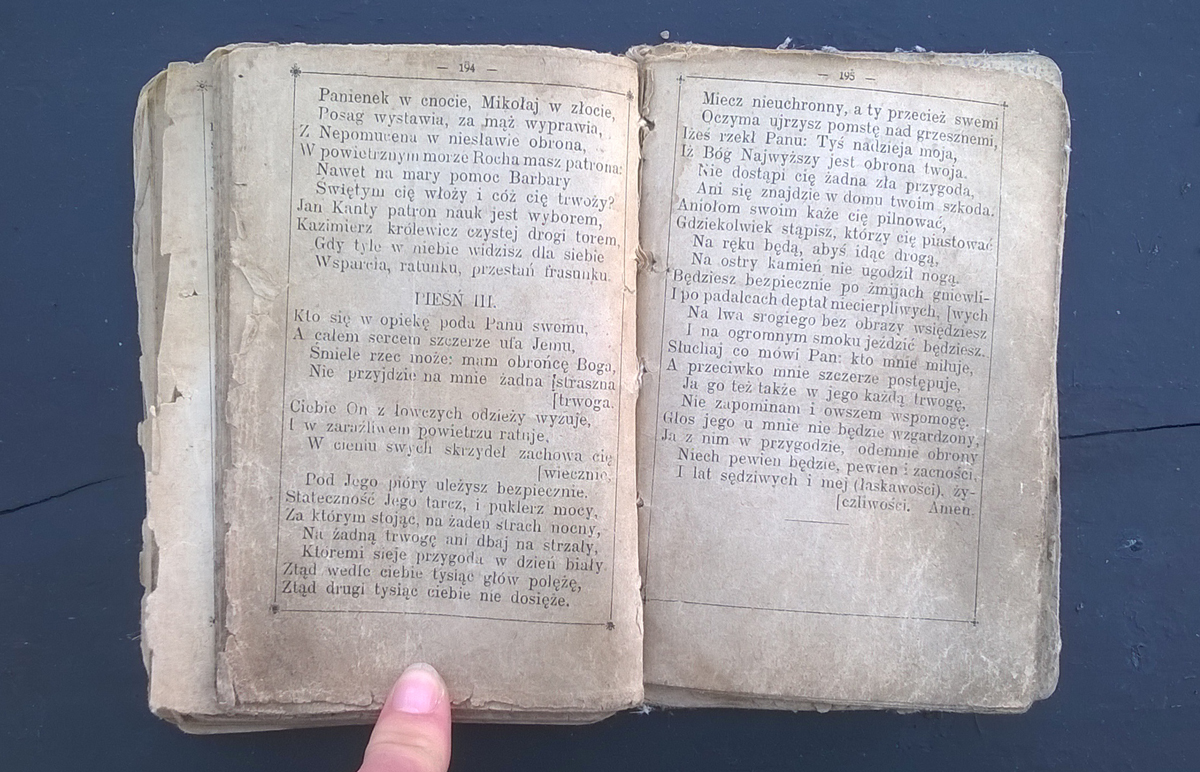 — 194 —
Panienek w cnocie, Mikołaj w złocie,
Posag wystawia, za mąż wyprawia,
Z Nepomucena w niesławie obrona,
W powietrznym morze Rocha masz patrona:
Nawet na mary pomoc Barbary
Świętym cię włoży i cóż cię trwoży?
Jan Kanty patron nauk jest wyborem,
Kazimierz królewicz czystej drogi torem,
Gdy tyle w niebie widzisz dla siebie
Wsparcia, ratunku, przestań frasunku.
PIEŚŃ III.
Kto się w opiekę poda Panu swemu,
A całem sercem szczerze ufa Jemu,
Śmiele rzec może: mam obrońcę Boga,
Nie przyjdzie na mnie żadna [straszna
[trwoga.
Ciebie On z łowczych odzieży wyzuje,
I w zaraźliwem powietrzu ratuje,
W cieniu swych skrzydeł zachowa cię
[wiecznie,
Pod Jego pióry uleżysz bezpiecznie.
Stateczność Jego tarcz, i puklerz mocy,
Za którym stojąc, na żaden strach nocny,
Na żadną trwogę ani dbaj na strzały,
Któremi sieje przygoda w dzień biały
Ztąd wedle ciebie tysiąc głów polęże,
Ztąd drugi tysiąc ciebie nie dosięże.
— 195 —
Miecz nieuchronny, a ty przecież swemi
Oczyma ujrzysz pomstę nad grzesznemi,
Iżeś rzekł Panu: Tyś nadzieja moja,
Iż Bóg Najwyższy jest obrona twoja.
Nie dostąpi cię żadna zła przygoda,
Ani się znajdzie w domu twoim szkoda.
Aniołom swoim każe cię pilnować,
Gdziekolwiek stąpisz, którzy cię piastować
Na ręku będą, abyś idąc drogą,
Na ostry kamień nie ugodził nogą.
Będziesz bezpiecznie po żmijach gniewli-
I po padalcach deptał niecierpliwych, [wych
Na lwa srogiego bez obrazy wsiędziesz
I na ogromnym smoku jeździć będziesz.
Słuchaj co mówi Pan: kto mnie miłuje,
A przeciwko mnie szczerze postępuje,
Ja go też także w jego każdą trwogę,
Nie zapominam i owszem wspomogę.
Głos jego u mnie nie będzie wzgardzony,
Ja z nim w przygodzie, odemnie obrony
Niech pewien będzie, pewien i zacności,
I lat sędziwych i mej (łaskawości), ży-
[czliwości. Amen.